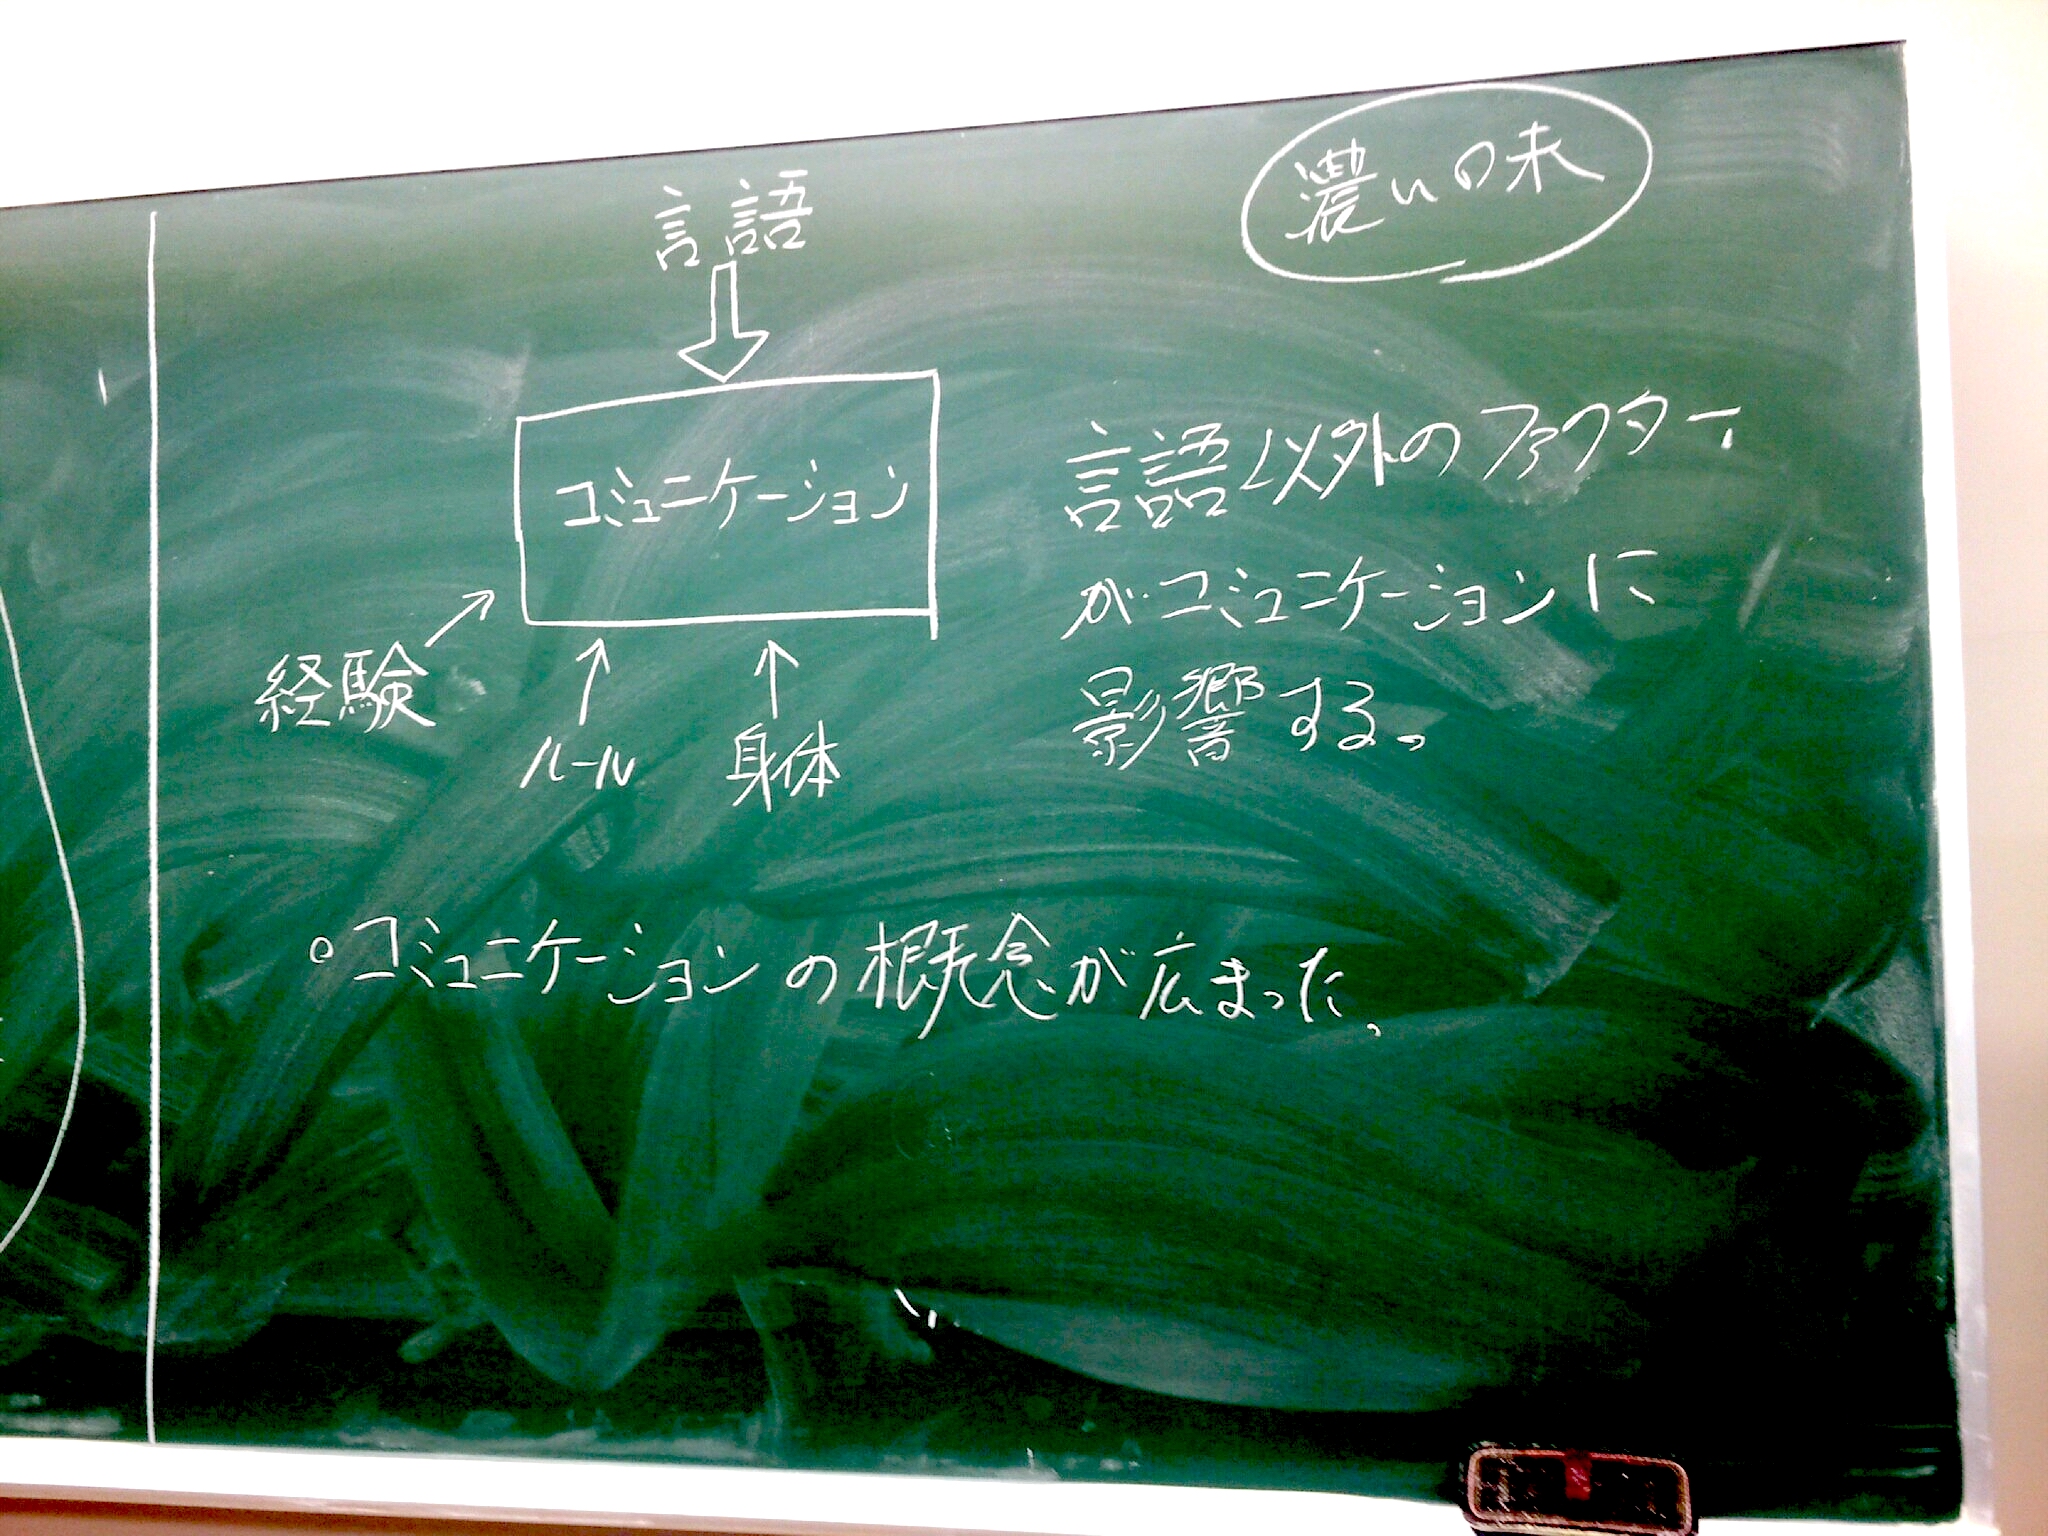 濃い口味
言語
コミュニケーション
経験
ルール
身体
言語以外のファクター
がコミュニケーションに
影響する。
○コミュニケーションの概念が広まった。